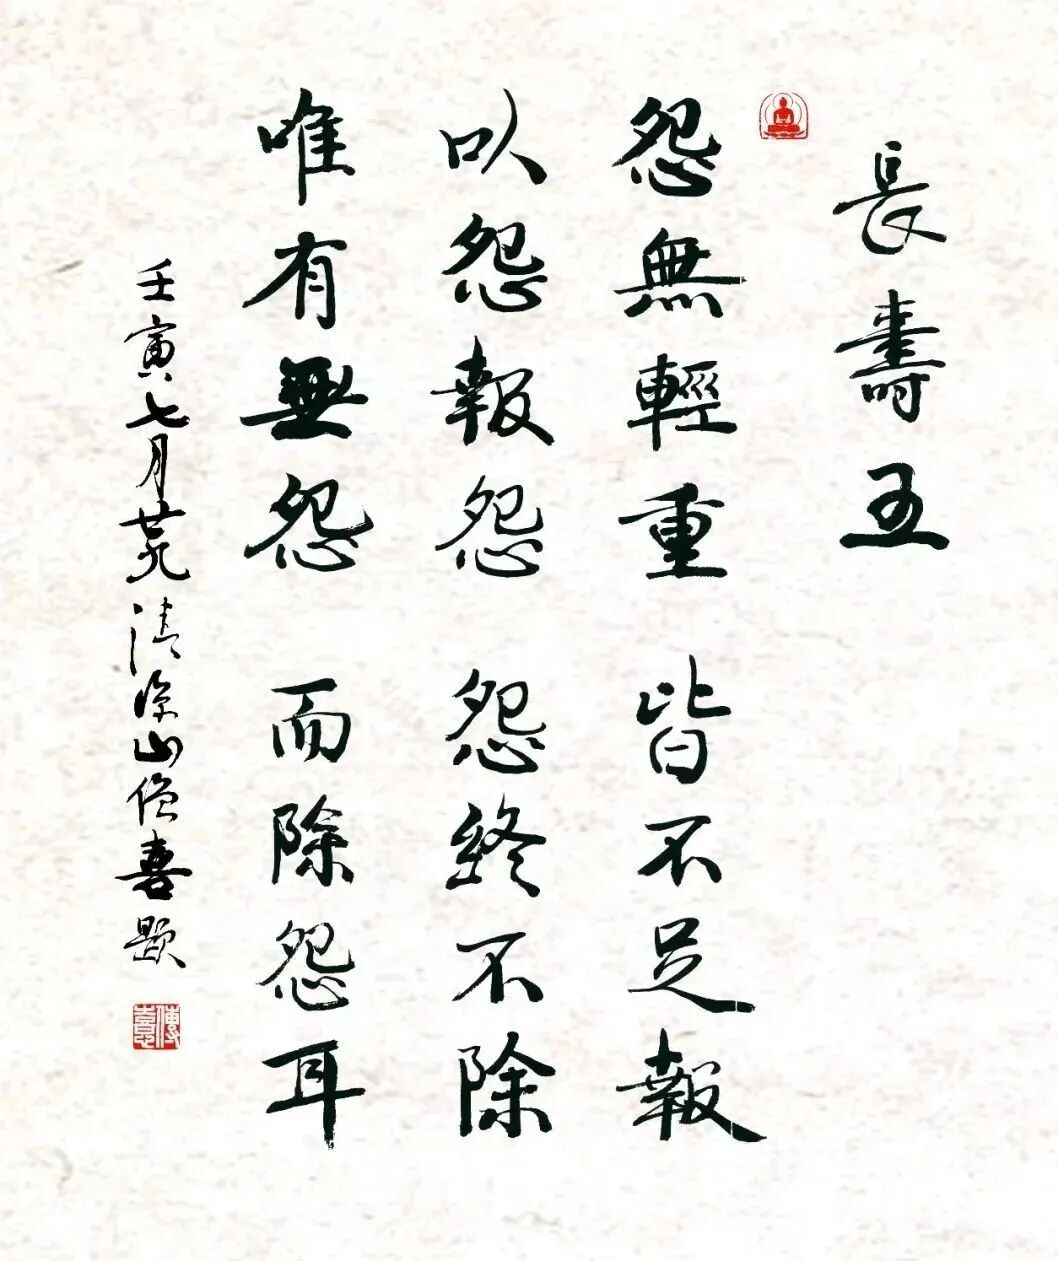 長壽王
怨無輕重 皆不足報
以怨報怨 怨終不除
唯有無怨 而除怨耳
壬寅七月廿九清涼山僧喜題